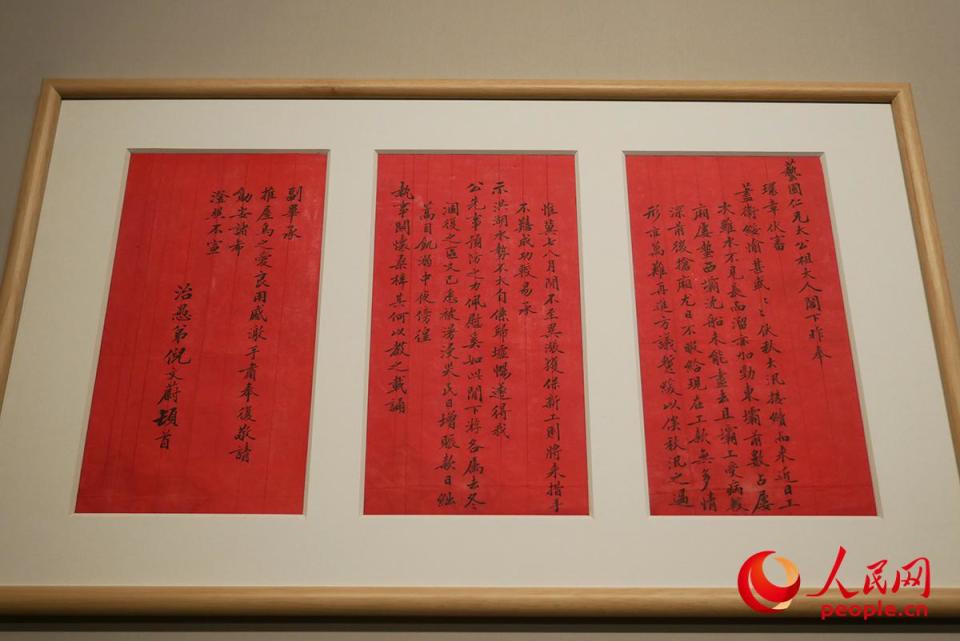 藝圃仁兄大公祖大人閣下昨奉
環章伏審
蓋衛綏愉甚盛〻伏秋大汛接續而來近日工
次雖水不見長而溜亦加勁東壩前數占屢
廂屢墊西壩沈船未能盡去且壩工受病較
深前後搶廂尤日不暇給現在工款無多情
形寔萬難再進方議暫緩以俟秋汛之過
惟冀七八月間不至異漲獲保新工則將來措手
不難成功較易承
示洪湖水勢不大自係歸墟暢達得我
公先事預防之力佩慰奚如此間下游各屬去冬
涸復之區又已悉被湯浸災民日增賑款日絀
蒿目飢溺中夜傍徨
執事關懷桑梓其何以教之載誦
副畢承
推屋烏之愛良用感激手肅奉復敬請
勛安諸希
澄照不宣
治愚弟倪文蔚頓首
人民网
people.cn